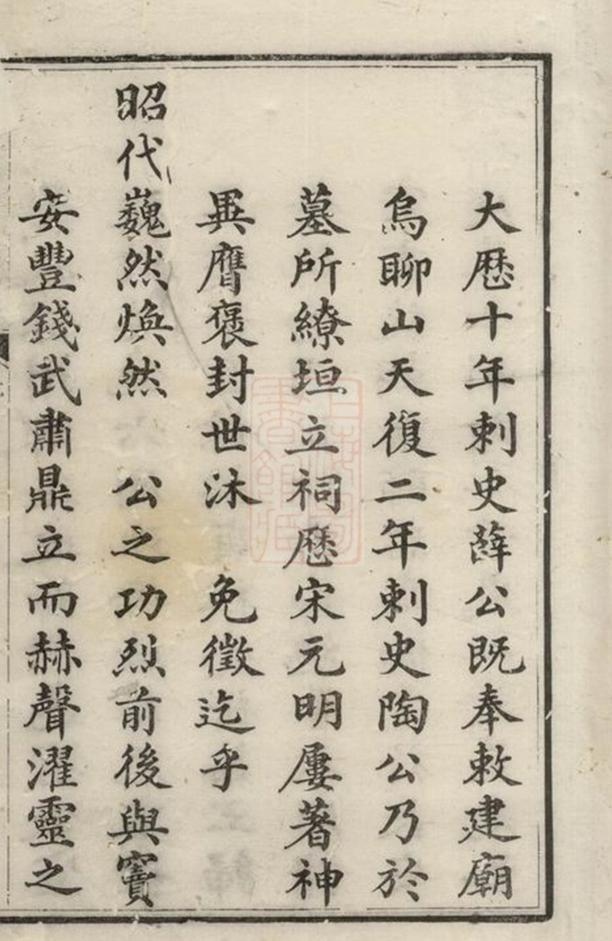 大歷十年刺史薛公既奉敕建廟
烏聊山天復二年刺史陶公乃於
墓所繚垣立祠歷宋元明屢著神
異膺褒封世沐 免徵迄乎
昭代巍然煥然 公之功烈前後與竇
安豐錢武肅鼎立而赫聲濯靈之